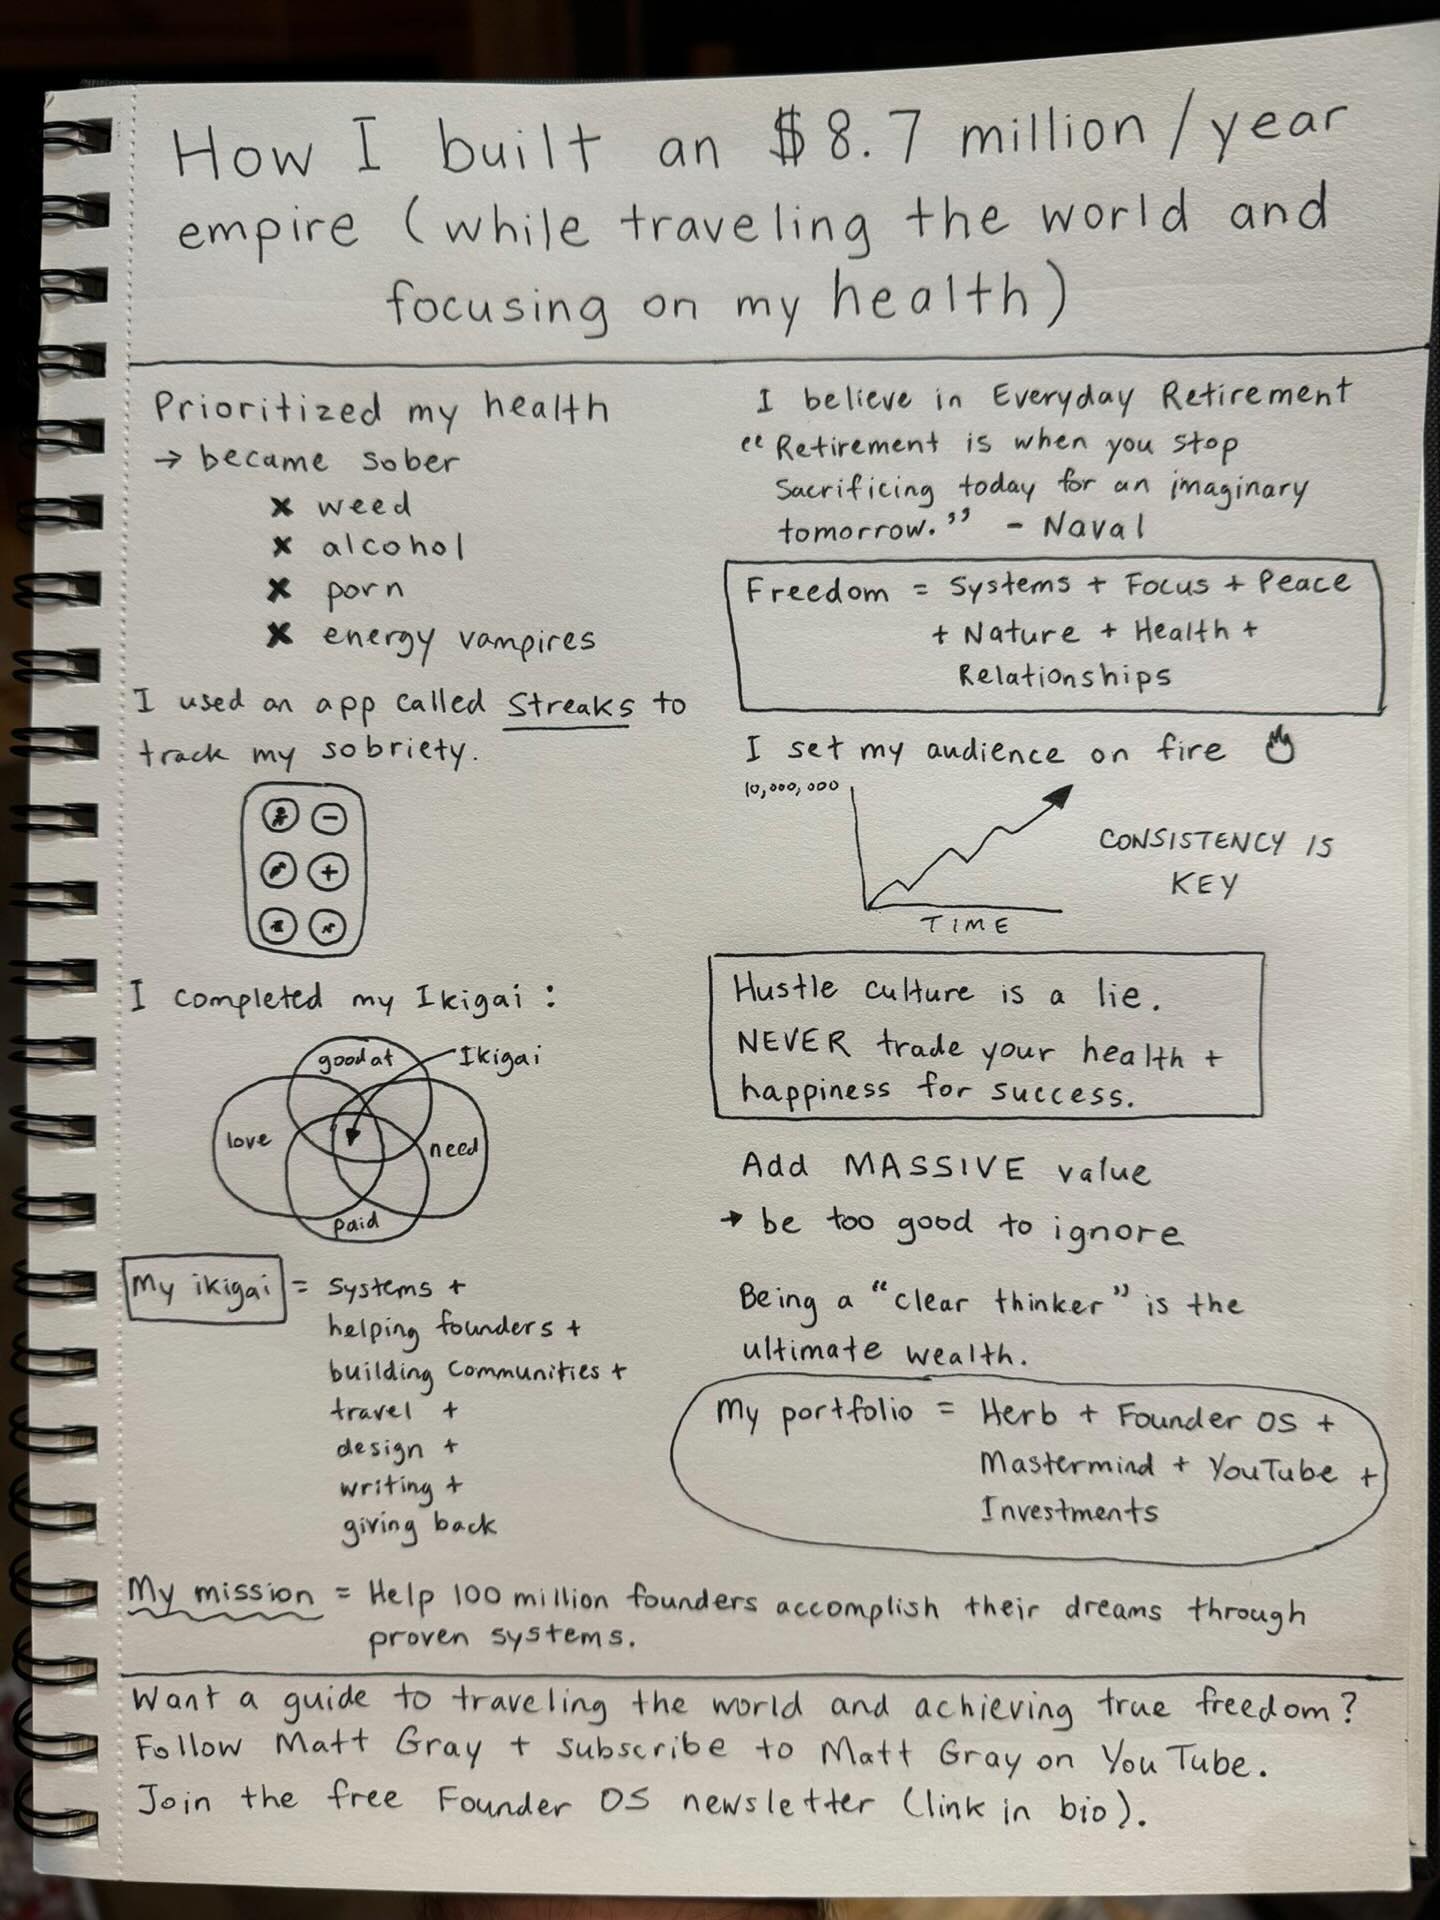 How I built an $8.7 million/year
empire (while traveling the world and
focusing on my health)
Prioritized my health
→ became sober
✗ weed
✗ alcohol
✗ porn
✗ energy vampires
I used an app called Streaks to
track my sobriety.
I completed my Ikigai:
good at
Ikigai
love
need
paid
My ikigai = systems +
helping founders +
building communities +
travel +
design +
writing +
giving back
I believe in Everyday Retirement
"Retirement is when you stop
sacrificing today for an imaginary
tomorrow." - Naval
Freedom = Systems + Focus + Peace
+ Nature + Health +
Relationships
I set my audience on fire
10,000,000
TIME
CONSISTENCY IS
KEY
Hustle culture is a lie.
NEVER trade your health +
happiness for success.
Add MASSIVE value
→ be too good to ignore
Being a "clear thinker" is the
ultimate wealth.
My portfolio = Herb + Founder OS +
Mastermind + YouTube +
Investments
My mission = Help 100 million founders accomplish their dreams through
proven systems.
Want a guide to traveling the world and achieving true freedom?
Follow Matt Gray + subscribe to Matt Gray on YouTube.
Join the free Founder OS newsletter (link in bio).